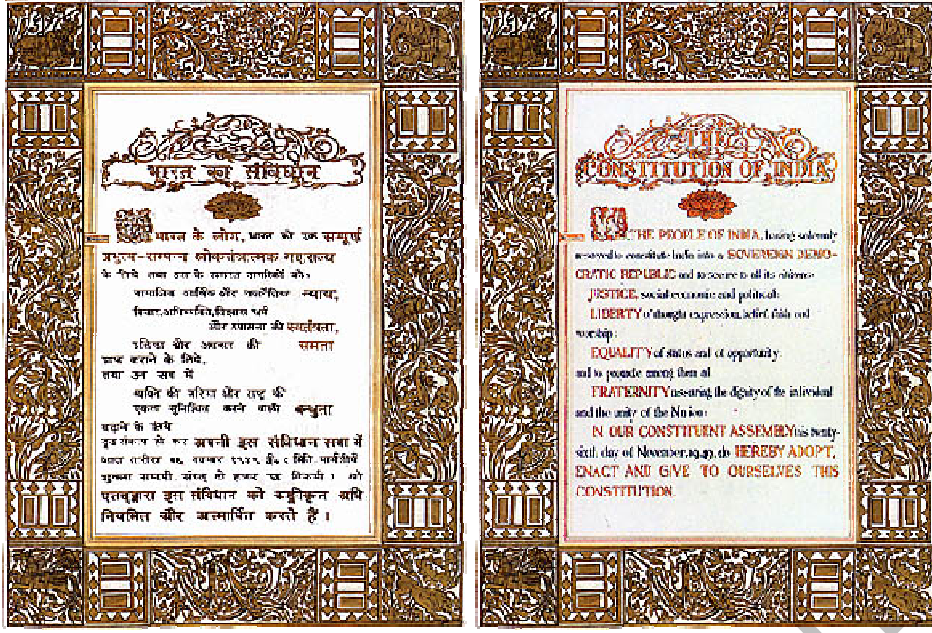 भारत का संविधान
भारत के लोग, भारत को एक सम्पूर्ण
प्रभुत्व-सम्पन्न लोकतंत्रात्मक गणराज्य
के लिये तथा उस के समस्त नागरिकों को:
सामाजिक आर्थिक और राजनैतिक न्याय,
विचार, अभिव्यक्ति, विश्वास धर्म
और उपासना की स्वतंत्रता,
और अवसर की समता
प्राप्त कराने के लिये,
तथा उन सब में
व्यक्ति की गरिमा और राष्ट्र की
एकता सुनिश्चित करने वाली बन्धुता
बढ़ाने के लिये
हो कर अपनी इस संविधान सभा में
आज तारीख २६ नवम्बर १९४९ ई०
को
एतद्द्वारा इस संविधान को अङ्गीकृत अधि
नियमित और आत्मार्पित करते हैं ।
THE
CONSTITUTION OF INDIA
THE PEOPLE OF INDIA, having solemnly
resolved to constitute India into a SOVEREIGN DEMO-
CRATIC REPUBLIC and to secure to all its citizens:
JUSTICE, social economic and political:
LIBERTY of thought expression, belief, faith and
worship:
EQUALITY of status and of opportunity:
and to promote among them all
FRATERNITY assuring the dignity of the individual
and the unity of the Nation:
IN OUR CONSTITUENT ASSEMBLY this twenty-
sixth day of November, 1949, do HEREBY ADOPT,
ENACT AND GIVE TO OURSELVES THIS
CONSTITUTION.